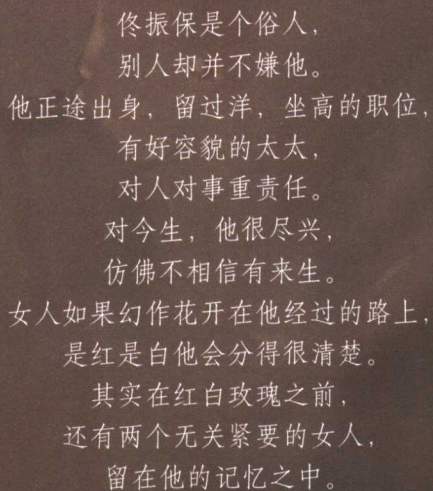 佟振保是个俗人，
别人却并不嫌他。
他正途出身，留过洋，坐高的职位，
有好容貌的太太，
对人对事重责任。
对今生，他很尽兴，
仿佛不相信有来生。
女人如果幻作花开在他经过的路上，
是红是白他会分得很清楚。
其实在红白玫瑰之前，
还有两个无关紧要的女人，
留在他的记忆之中。